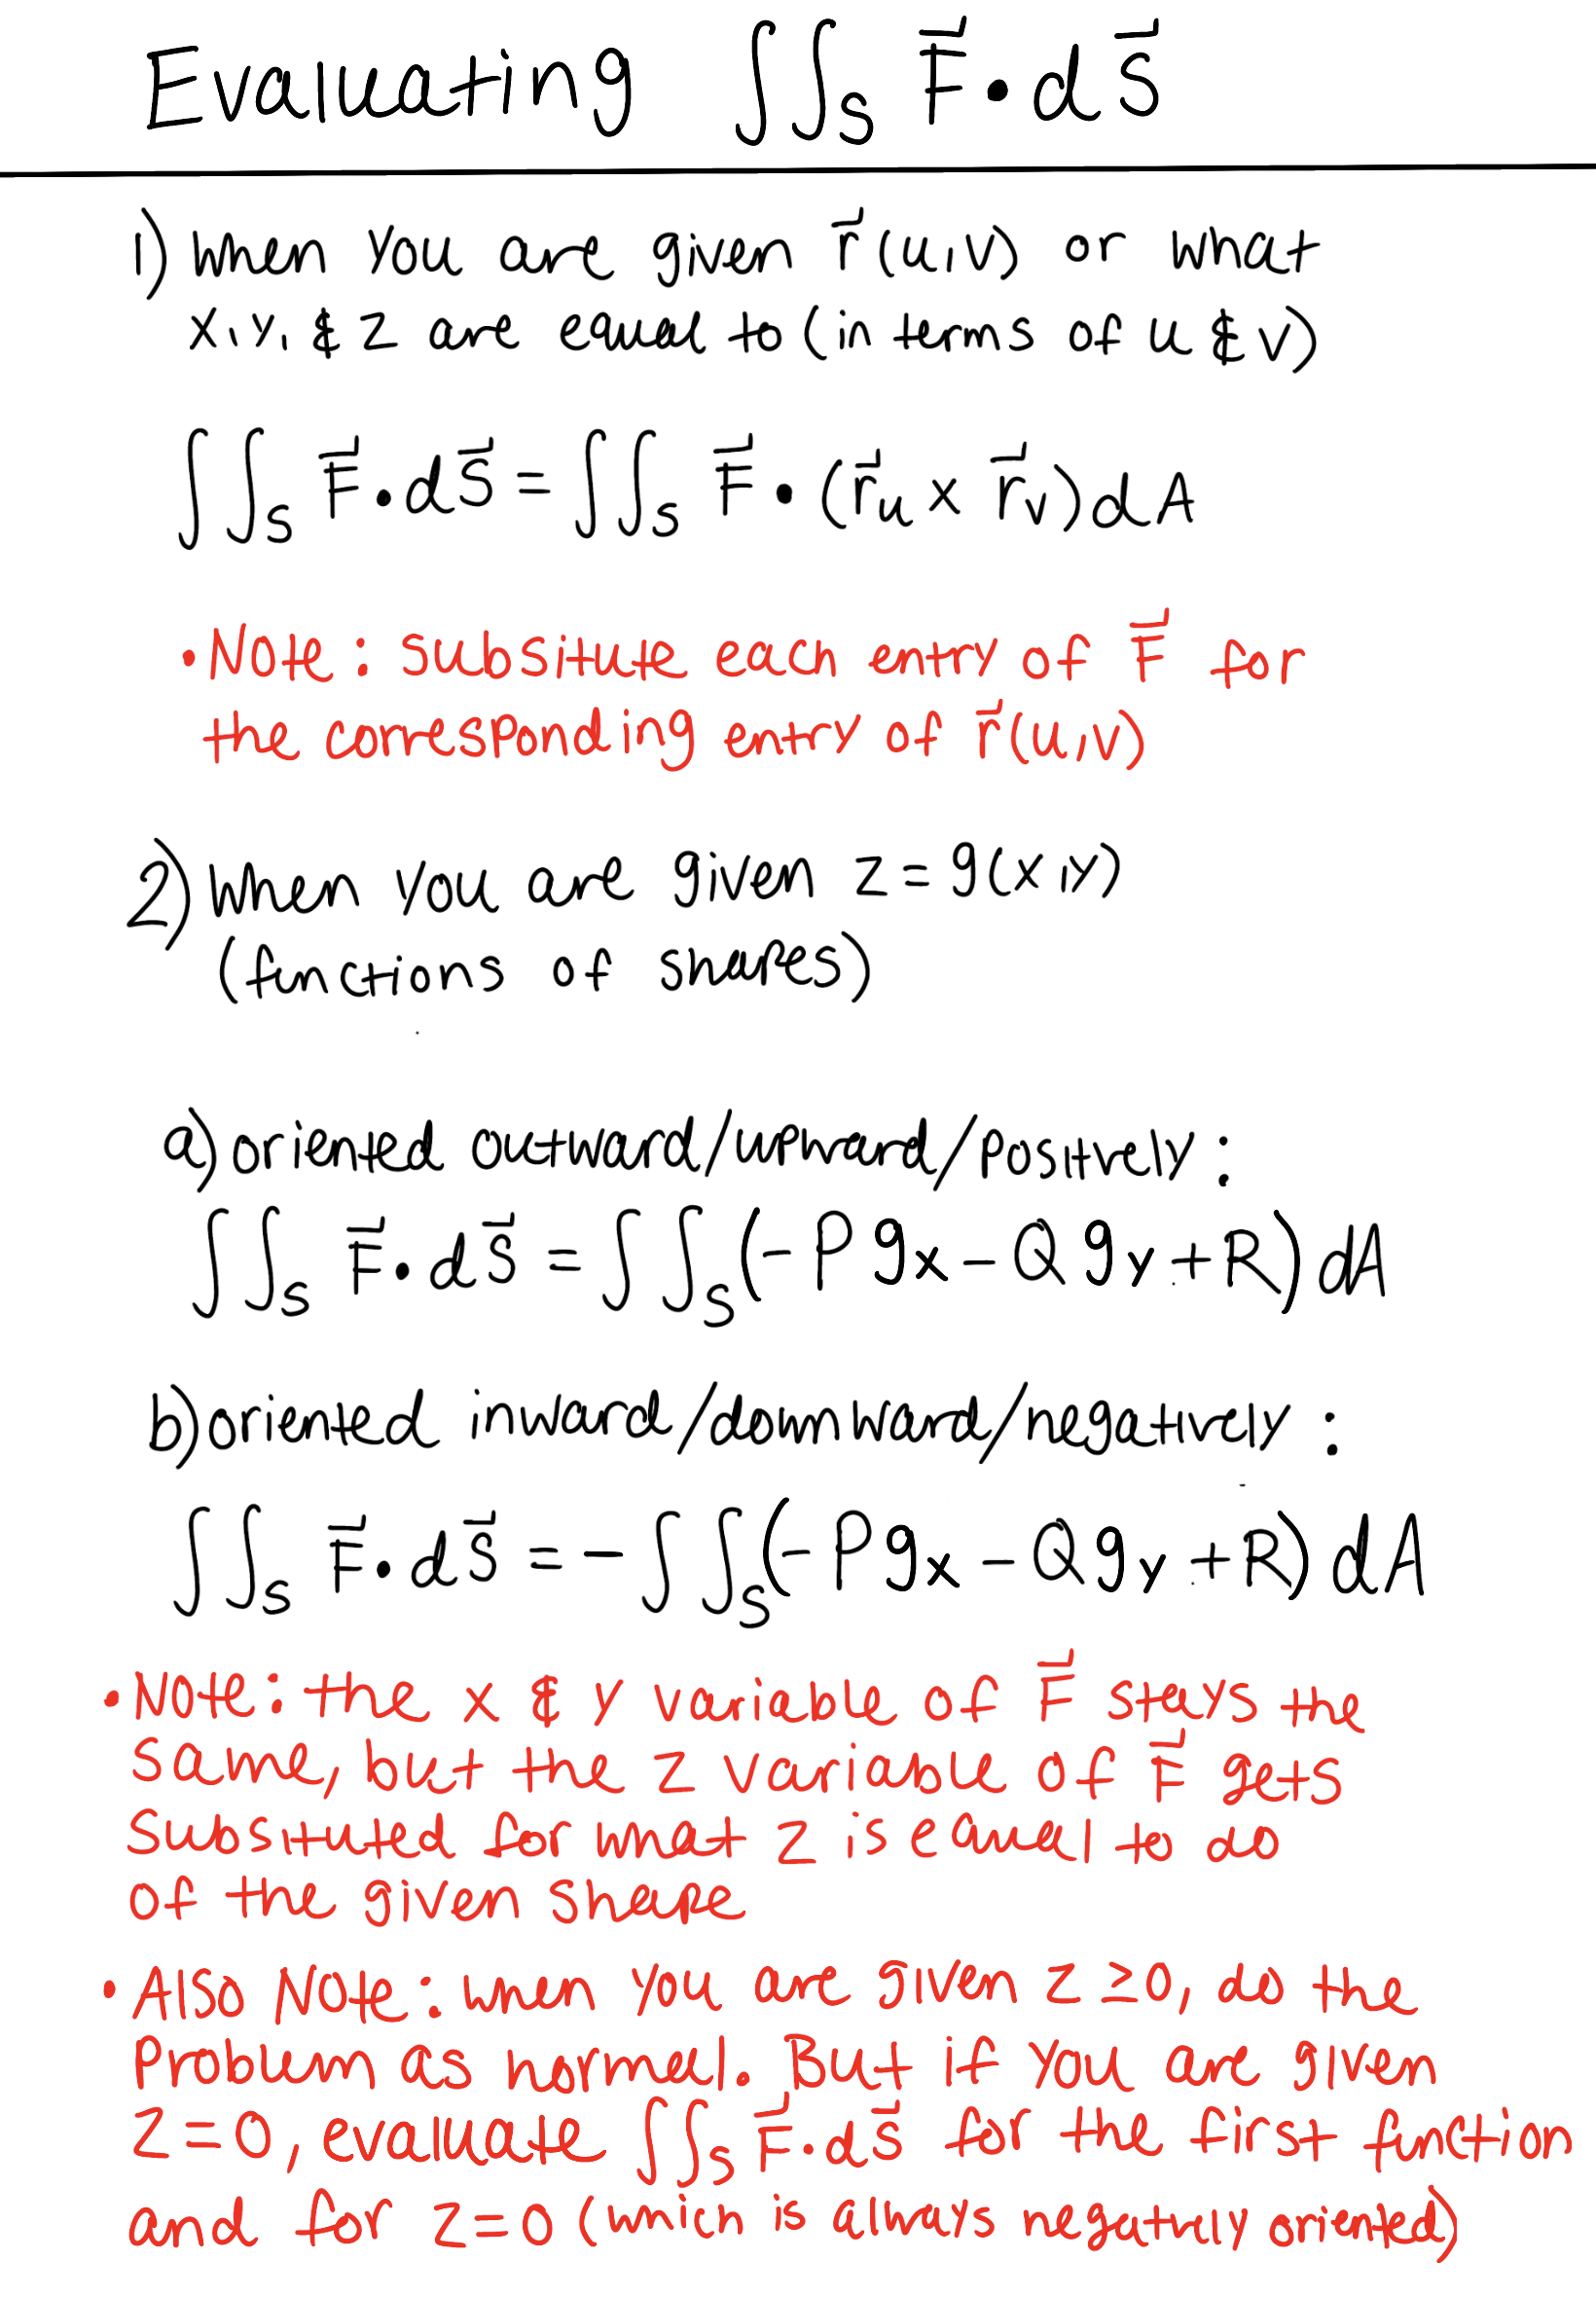 Evaluating ∫∫_S F⃗·dS⃗
1) when you are given r⃗(u,v) or what
x, y, & z are equal to (in terms of u & v)
∫∫_S F⃗·dS⃗ = ∫∫_S F⃗·(r⃗_u x r⃗_v)dA
• Note: subsitute each entry of F⃗ for
the corresponding entry of r⃗(u,v)
2) when you are given z = g(x,y)
(functions of shapes)
a) oriented outward/upward/positively:
∫∫_S F⃗·dS⃗ = ∫∫_S (-P g_x - Q g_y + R) dA
b) oriented inward/downward/negatively:
∫∫_S F⃗·dS⃗ = - ∫∫_S (-P g_x - Q g_y + R) dA
• Note: the x & y variable of F⃗ stays the
same, but the z variable of F⃗ gets
subsituted for what z is equal to do
of the given shape
• Also Note: when you are given z ≥0, do the
problem as normal. But if you are given
z=0, evaluate ∫∫_S F⃗·dS⃗ for the first function
and for z=0 (which is always negatively oriented)